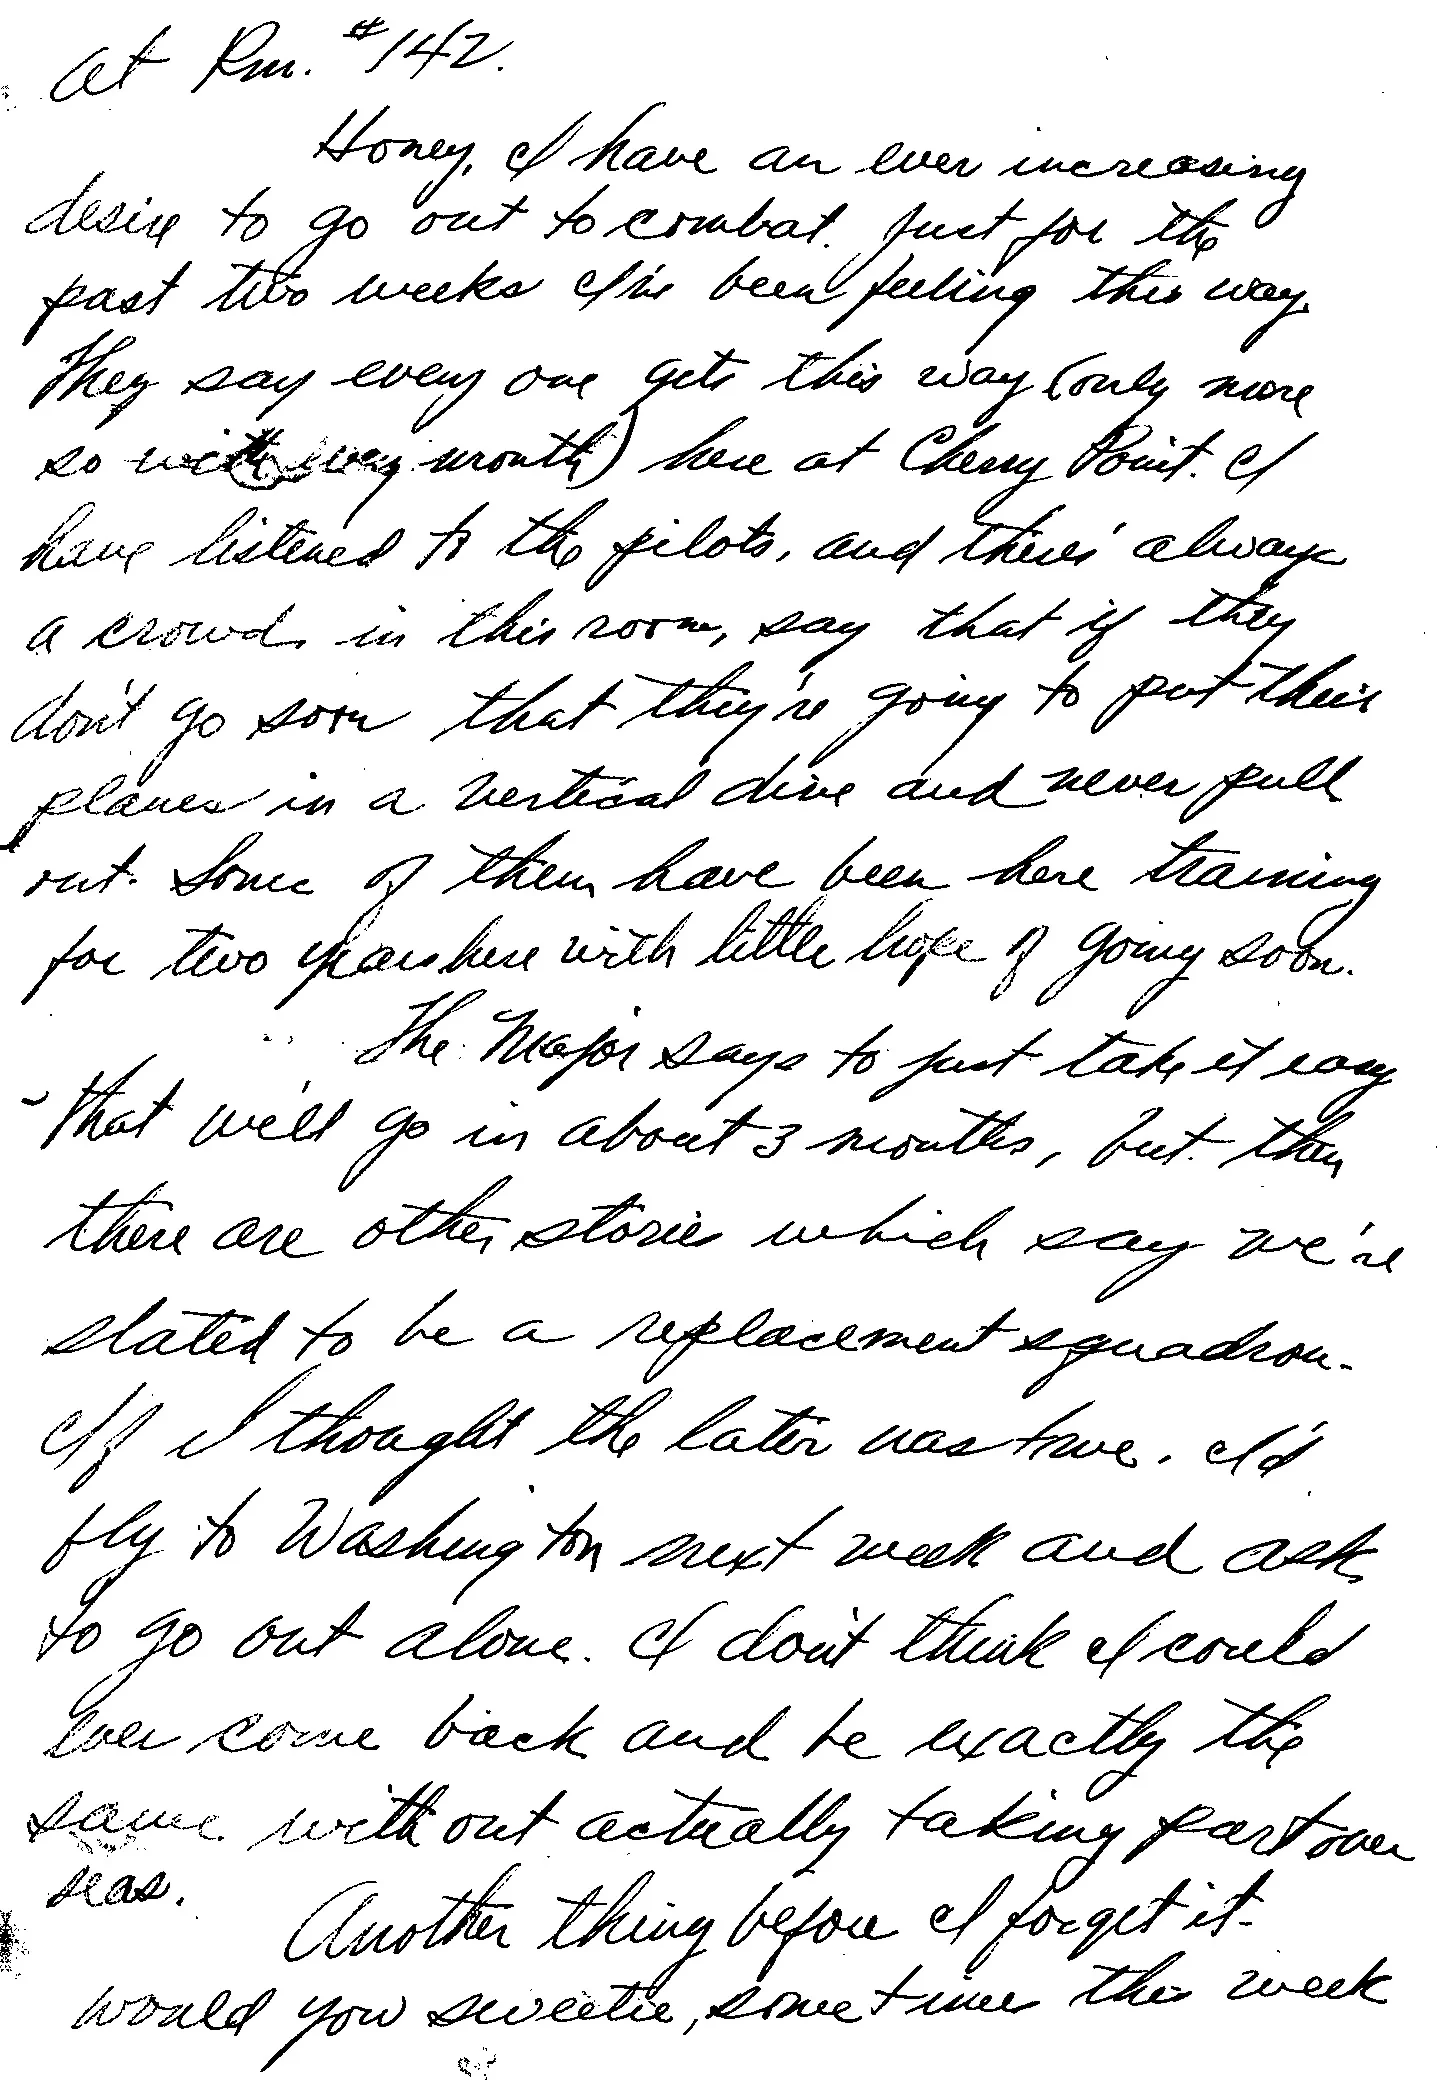 at Rm. #142.
Honey, I have an ever increasing
desire to go out to combat. Just for the
past two weeks I've been feeling this way.
They say every one gets this way (only more
so with every month) here at Cherry Point. I
have listened to the pilots, and there's always
a crowd in this room, say that if they
don't go soon that they're going to put their
planes in a vertical dive and never pull
out. Some of them have been here training
for two years here with little hope of going soon.
The Major says to just take it easy
that we'll go in about 3 months, but then
there are other stories which say we're
slated to be a replacement squadron.
If I thought the later was true, I'd
fly to Washington next week and ask
to go out alone. I don't think I could
ever come back and be exactly the
same without actually taking part over
seas.
Another thing before I forget it -
would you sweetie, sometime this week